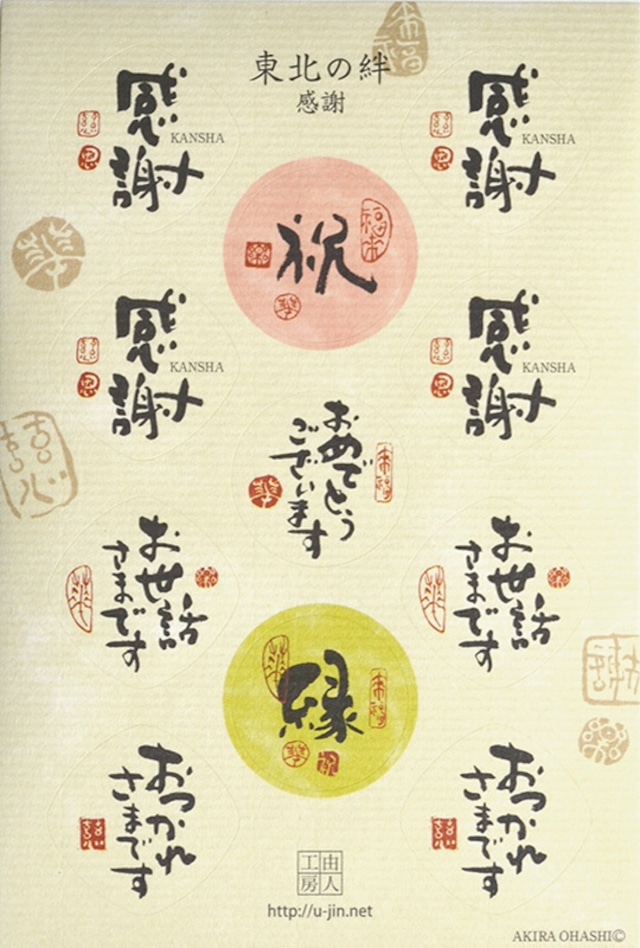 東北の絆
感謝
感謝
KANSHA
感謝
KANSHA
祝
感謝
KANSHA
感謝
KANSHA
おめでとう
ございます
お世話
さまです
お世話
さまです
縁
おつかれ
さまです
おつかれ
さまです
由人
工房
http://u-jin.net
AKIRA OHASHI©